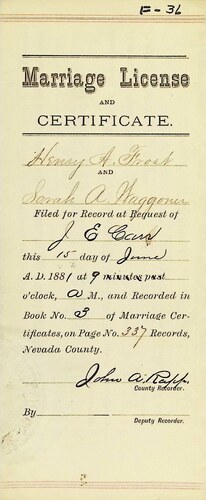 F-36
Marriage License
AND
CERTIFICATE.
Henry A. Frost
AND
Sarah A. Waggoner
Filed for Record at Request of
J E Carr
this 15 day of June
A. D. 1881 at 9 minutes past
o'clock, A M., and Recorded in
Book No. 3 of Marriage Cer-
tificates, on Page No. 337 Records,
Nevada County.
John A. Rapp.
County Recorder.
By
Deputy Recorder.